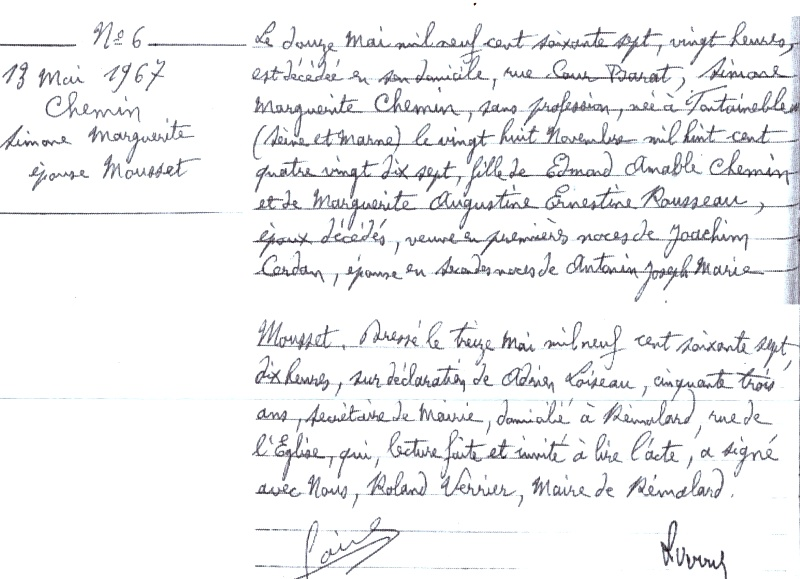 Nº 6
13 Mai 1967
Chemin
Simone Marguerite
épouse Mousset
Le douze Mai mil neuf cent soixante sept, vingt heures,
est décédée en son domicile, rue Cour Barat, Simone
Marguerite Chemin, sans profession, née à Fontaineblea
(Seine et Marne) le vingt huit Novembre mil huit cent
quatre vingt dix sept, fille de Edmond Amable Chemin
et de Marguerite Augustine Ernestine Rousseau,
époux décédés, veuve en premières noces de Joachim
Cordan, épouse en secondes noces de Antonin Joseph Marie
Mousset. Dressé le treize Mai mil neuf cent soixante sept,
dix heures, sur déclaration de Adrien Loiseau, cinquante trois
ans, secrétaire de Mairie, domicilié à Rémalard, rue de
l'Église, qui, lecture faite et invité à lire l'acte, a signé
avec Nous, Roland Verrier, Maire de Rémalard.